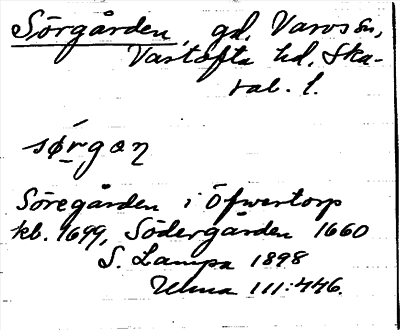 Sörgården, gd, Varvs sn,
Vartofta hd, Ska-
rab. l.
sørgan
Söregården i Öfwertorp
kb. 1699, Södergården 1660
S. Lampa 1898
Ulma 111:446.